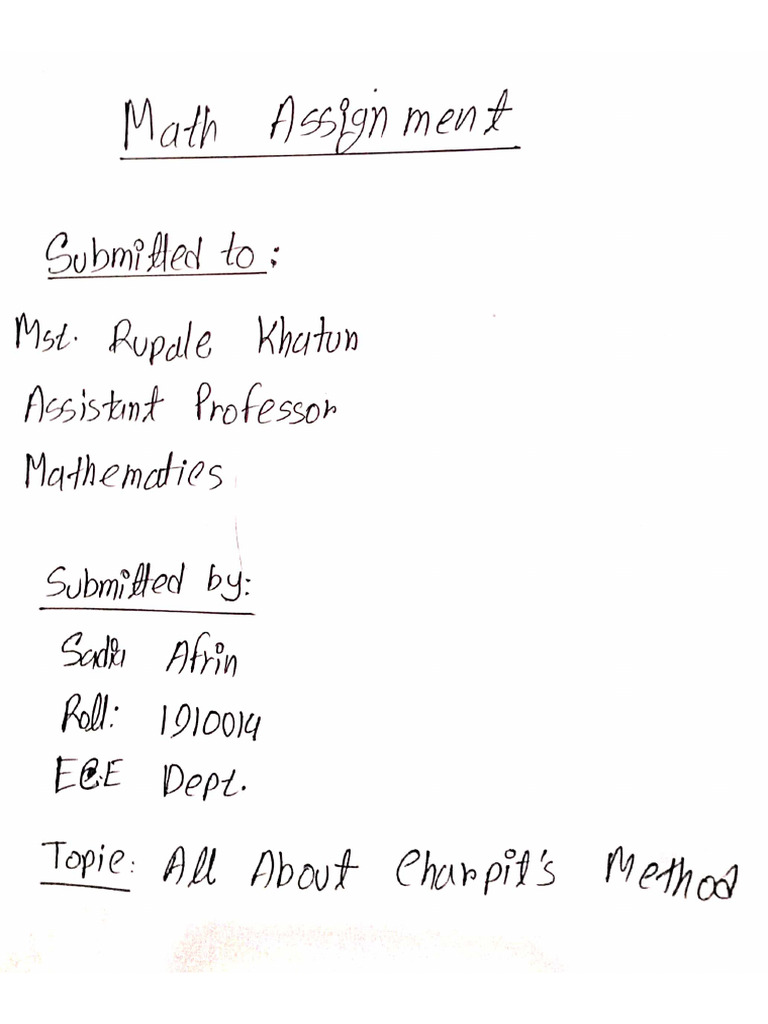 Math Assignment
Submitted to:
Mst. Rupale Khatun
Assistant Professor
Mathematics
Submitted by:
Sadia Afrin
Roll: 1910014
ECE Dept.
Topic: All About Charpit's Method